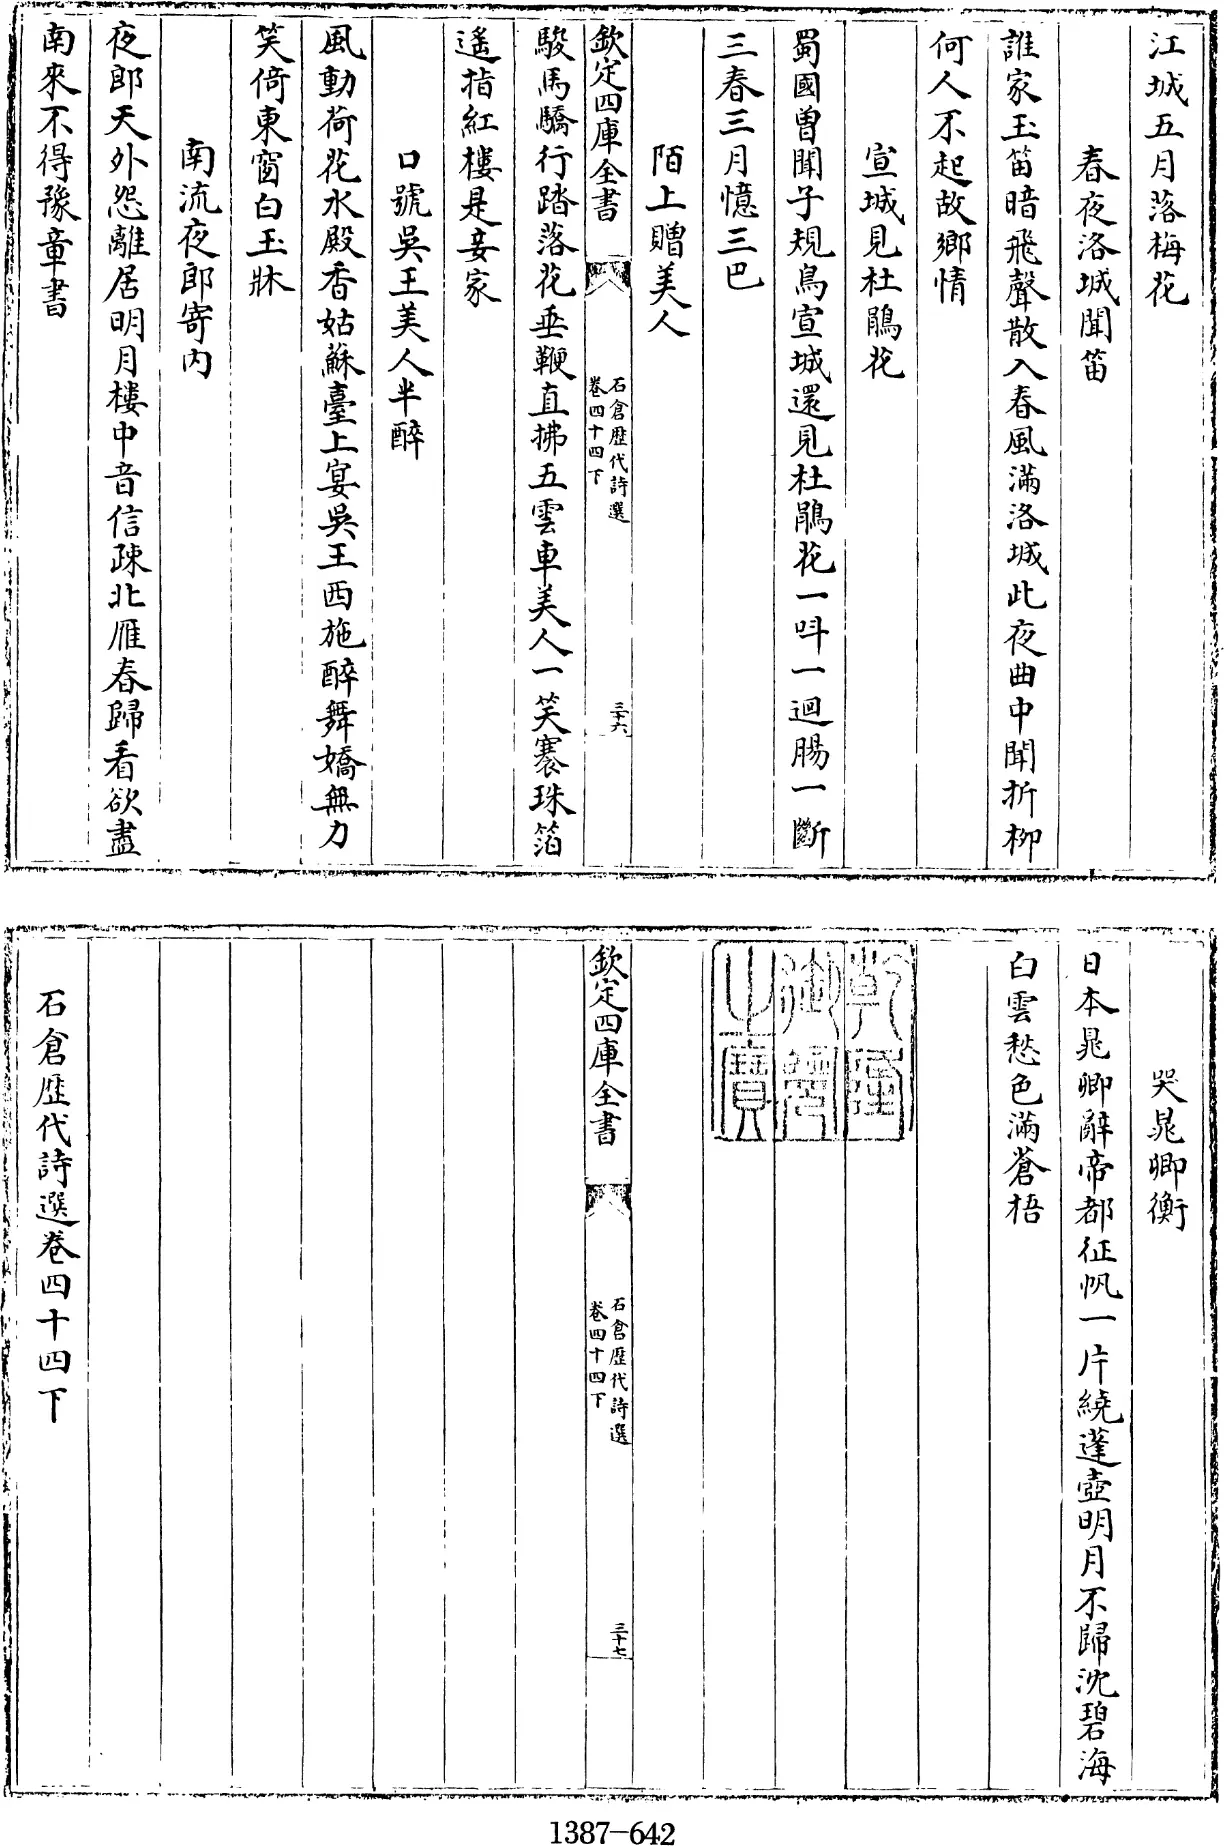 江城五月落梅花
春夜洛城聞笛
誰家玉笛暗飛聲散入春風滿洛城此夜曲中聞折柳
何人不起故鄉情
宣城見杜鵑花
蜀國曽聞子規鳥宣城還見杜鵑花一呌一迴腸一斷
三春三月憶三巴
陌上贈美人
欽定四庫全書
石倉歴代詩選
卷四十四下
三十六
駿馬驕行踏落花垂鞭直拂五雲車美人一笑褰珠箔
遙指紅樓是妾家
口號吳王美人半醉
風動荷花水殿香姑蘇臺上宴吳王西施醉舞嬌無力
笑倚東窗白玉牀
南流夜郎寄内
夜郎天外怨離居明月樓中音信疎北雁春歸看欲盡
南來不得豫章書
哭晁卿衡
日本晁卿辭帝都征帆一片繞蓬壺明月不歸沈碧海
白雲愁色滿蒼梧
乾隆
御覽
之寶
欽定四庫全書
石倉歴代詩選
卷四十四下
三十七
石倉歴代詩選卷四十四下
1387-642